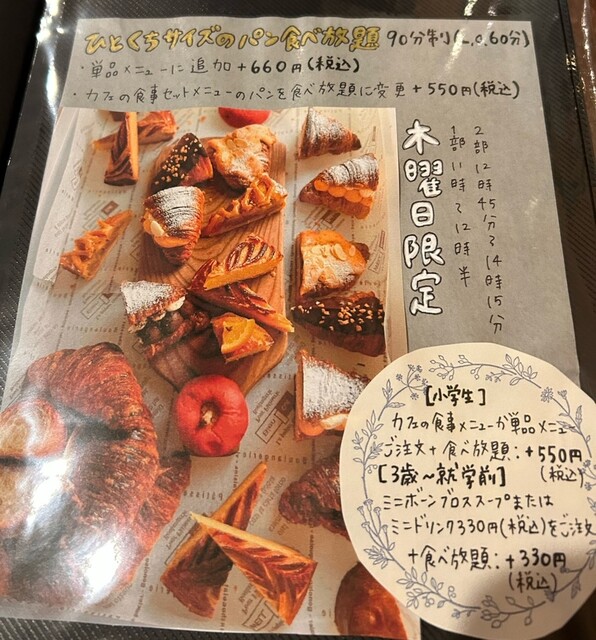 ひとくちサイズのパン食べ放題 90分制(L.o.60分)
・単品メニューに追加+660円(税込)
・カフェの食事セットメニューのパンを食べ放題に変更+550円(税込)
木曜日限定
1部 11時〜12時半
2部 12時45分〜14時15分
【小学生】
カフェの食事メニューか単品メニュー
ご注文+食べ放題:+550円
(税込)
【3歳〜就学前】
ミニボーンブロススープまたは
ミニドリンク330円(税込)をご注文
+食べ放題:+330円
(税込)